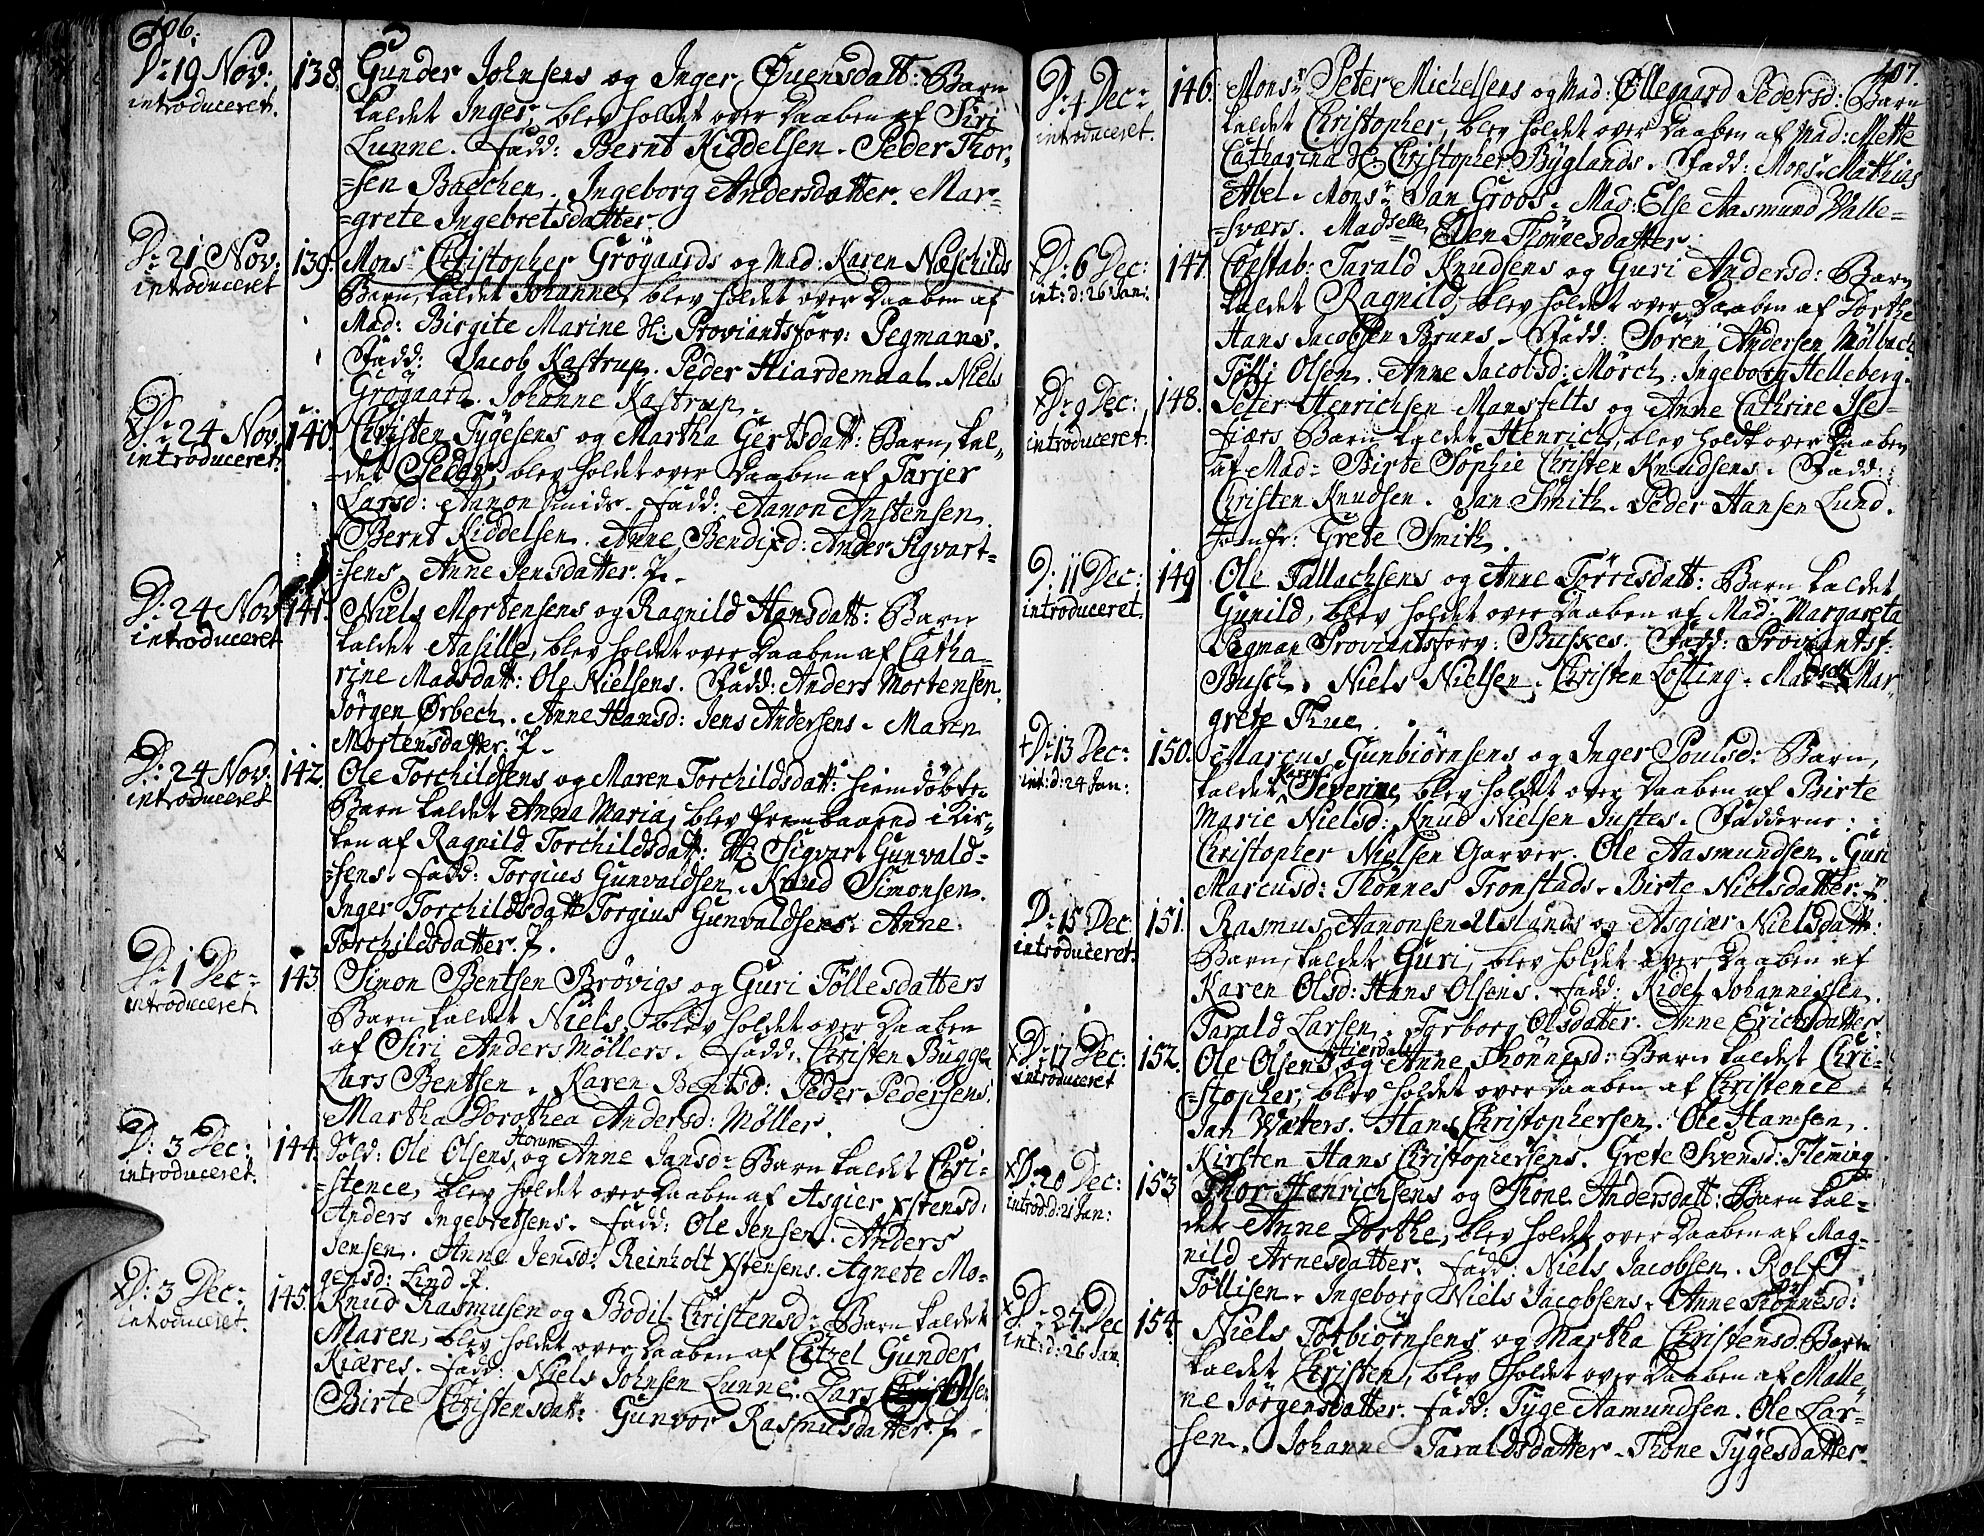 106.
D: 19 Nov: 138. Gunder Johnsens og Inger Øuensdatt: Barn
introduceret. kaldet Inger, blev holdet over Daaben af Siri
Lunne. Fadd: Bernt Kiddelsen. Peder Thor-
=sen Baschen. Ingeborg Andersdatter. Mar-
=grete Ingebretsdatter.
D: 21 Nov: 139. Monsr Christopher Grögaards og Mad: Karen Næschilds
introduceret Barn, kaldet Johanne, blev holdet over Daaben af
Mad: Birgite Marine H: Proviantsforv: Pegmans.
Fadd: Jacob Kastrup. Peder Hiardemaal. Niels
Grögaard. Johanne Kastrup.
D: 24 Nov 140. Christen Tygesens og Martha Gertsdatt: Barn, kal-
introduceret. =det Peder, blev holdet over Daaben af Tarjer
Larsd: Aanon Smids. Fadd: Aanon Anstensen.
Bernt Kiddelsen. Anne Bendixd: Ander Sigvart-
=sens. Anne Jensdatter. f.
D: 24 Nov 141. Niels Mortensens og Ragnild Hansdatt: Barn
introduceret kaldet Aasille, blev holdet over Daaben af Catha-
rine Madsdatt: Ole Nielsens. Fadd: Anders Mortensen.
Jörgen Örbech. Anne Hansd: Jens Andersens. Maren
Mortensdatter. f.
D: 24 Nov: 142. Ole Torchildsens og Maren Torchildsdatt: hiemdöbte
introduceret Barn kaldet Anna Maria, blev frembaarend i Kir-
ken af Ragnild Torchildsdatt: H: Sigvart Gunvald-
=sens. Fadd: Torgius Gunvaldsen. Knud Simonsen.
Inger Torchildsdatt Torgius Gunvaldsens. Anne
Torchildsdatter. f.
D: 1 Dec: 143. Simon Bentsen Brövigs og Guri Töllesdatters
introduceret Barn kaldet Niels, blev holdet over Daaben
af Siri Anders Möllers. Fadd: Christen Bugge
Lars Bentsen. Karen Bentsd: Peder Pedersens.
Martha Dorothea Andersd: Möller.
D: 3 Dec: 144. Sold: Ole Olsens Horum og Anne Jansd: Barn kaldet Chri-
introduceret. =stence, blev holdet over Daaben af Asgier Xstensd:
Anders Ingebretsens. Fadd: Ole Jensen. Anders
Jensen. Anne Jensd: Reinholt Xstensens. Agnete Mo-
gensd: Lind. f.
x D: 3 Dec: 145. Knud Rasmusen og Bodil Christensd: Barn kaldet
introduceret. Maren, blev holdet over Daaben af Citzel Gunder
Kiæres. Fadd: Niels Johnsen Lunne. Lars Olsen
Birte Christensdatt: Gunvor Rasmusdatter. f.
107.
D: 4 Dec: 146. Monsr Peter Michelsens og Mad: Øllegaard Pedersd: Barn
introduceret. kaldet Christopher, blev holdet over Daaben af Mad: Mette
Catharina H: Christopher Byglands. Fadd: Monsr Mathias
Abel. Monsr Jan Groos. Mad: Else Aasmund Walle-
=sværs. Madselle Ellen Thönnesdatter.
x D: 6 Dec: 147. Constab: Tarald Knudsens og Guri Andersd: Barn
int: d: 26 Jan: kaldet Ragnild, blev holdet over Daaben af Dorthe
Hans Jacobsen Bruns. Fadd: Sören Andersen Mölbach
Tölli Olsen. Anne Jacobsd: Mörch. Ingeborg Helleberg.
x D: 9 Dec: 148. Peter Henrichsen Mansfelts og Anne Cathrine Ise-
introduceret. fiærs Barn kaldet Henrich, blev holdt over Daaben
af Mad: Birte Sophie Christen Knudsens. Fadd:
Christen Knudsen. Jan Smith. Peder Hansen Lund.
Jomfr: Grete Smith.
D: 11 Dec: 149. Ole Tallachsens og Anne Törrisdatt: Barn kaldet
introduceret. Gunild, blev holdet over Daaben af Mad: Margareta
Pegman Proviantsforv: Buskes. Fadd: Proviantsf:
Busch. Niels Nielsen. Christen Lösting. Madselle Mar-
grete Thue.
+ D: 13 Dec: 150. Marcus Gunbiörnsens og Inger Poulsd: Barn,
int: d: 24 Jan: kaldet Karen Severine, blev holdet over Daaben af Birte
Marie Nielsd: Knud Nielsen Justes. Fadderne:
Christopher Nielsen Garver. Ole Aasmundsen. Guri
Marcusd: Thönnes Tronstads. Birte Nielsdatter. f.
D: 15 Dec 151. Rasmus Aanonsen Uslands og Asgiær Nielsdatt:
introduceret. Barn, kaldet Guri, blev holdet over Daaben af
Karen Olsd: Hans Olsens. Fadd: Kidel Johannissen.
Tarald Larsen. Torborg Olsdatter. Anne Erichsdatter.
x D: 17 Dec: 152. Ole Olsens Stierdals og Anne Thönnesd: Barn kaldet Chri-
introduceret =stopher, blev holdet over Daaben af Christence
Jan Watters. Hans Christophersen. Ole Hansen.
Kirsten Hans Christophersens. Grete Svensd: Fleming
x D: 20 Dec: 153. Thor Henrichsens og Thone Andersdatt: Barn kal-
introd: d: 21 Jan: det Anne Dorthe, blev holdet over Daaben af Mag-
nild Arnesdatter. Fadd: Niels Jacobsen. Rolf
Töllisen. Ingeborg Niels Jacobsens. Anne Thönnesd:
x D: 27 Dec 154. Niels Torbiörnsens og Martha Christensd: Barn
int: d: 26 Jan. kaldet Christen, blev holdet over Daaben af Malle-
ne Jörgensdatter. Fadd: Tyge Aamundsen. Ole Lar-
sen. Johanne Taraldsdatter. Thone Tygesdatter.